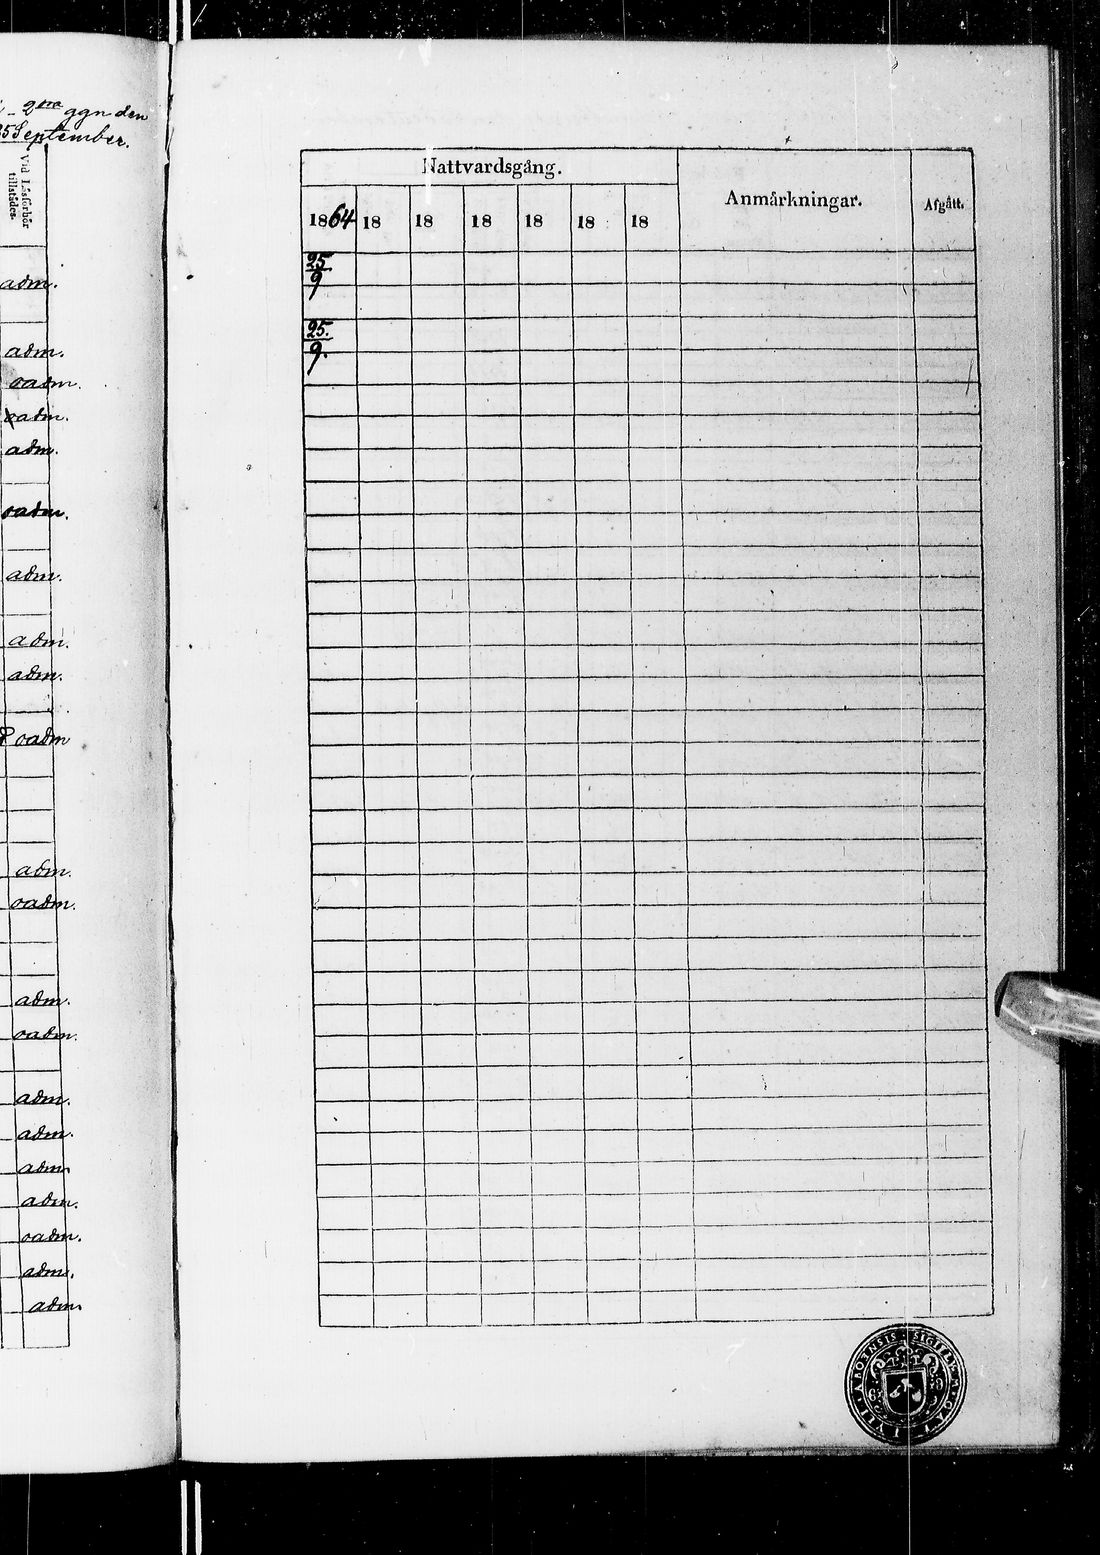 2dra ggn den
25 September.
Vid Läsförhör
tillstädes.
adm.
adm.
oadm.
oadm.
adm.
oadm.
adm.
adm.
adm.
oadm
adm.
oadm.
adm.
oadm.
adm.
adm.
adm.
adm.
oadm.
adm.
adm
Nattvardsgång.
Anmärkningar.
Afgått.
1864 18 18 18 18 18 18
25
9
25.
9.